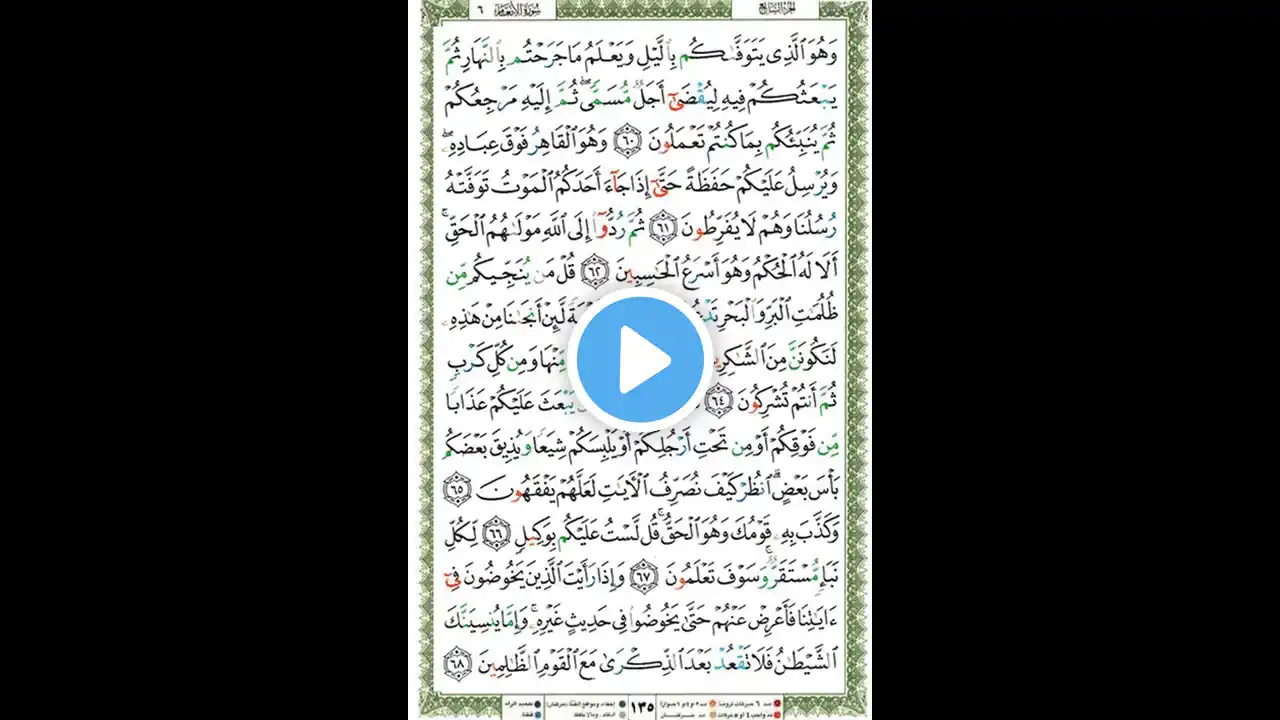 الجزء السابع
سورة الأنعام ٦
وَهُوَ ٱلَّذِى يَتَوَفَّىٰكُم بِٱلَّيْلِ وَيَعْلَمُ مَا جَرَحْتُم بِٱلنَّهَارِ ثُمَّ
يَبْعَثُكُمْ فِيهِ لِيُقْضَىٰٓ أَجَلٌ مُّسَمًّى ۖ ثُمَّ إِلَيْهِ مَرْجِعُكُمْ
ثُمَّ يُنَبِّئُكُم بِمَا كُنتُمْ تَعْمَلُونَ ٦٠ وَهُوَ ٱلْقَاهِرُ فَوْقَ عِبَادِهِۦ ۖ
وَيُرْسِلُ عَلَيْكُمْ حَفَظَةً حَتَّىٰٓ إِذَا جَآءَ أَحَدَكُمُ ٱلْمَوْتُ تَوَفَّتْهُ
رُسُلُنَا وَهُمْ لَا يُفَرِّطُونَ ٦١ ثُمَّ رُدُّوٓا۟ إِلَى ٱللَّهِ مَوْلَىٰهُمُ ٱلْحَقِّ ۚ
أَلَا لَهُ ٱلْحُكْمُ وَهُوَ أَسْرَعُ ٱلْحَٰسِبِينَ ٦٢ قُلْ مَن يُنَجِّيكُم مِّن
ظُلُمَٰتِ ٱلْبَرِّ وَٱلْبَحْرِ لَّئِنْ أَنجَىٰنَا مِنْ هَٰذِهِۦ
لَنَكُونَنَّ مِنَ مِّنْهَا وَمِن كُلِّ كَرْبٍ
ثُمَّ أَنتُمْ تُشْرِكُونَ ٦٤ يَبْعَثَ عَلَيْكُمْ عَذَابًا
مِّن فَوْقِكُمْ أَوْ مِن تَحْتِ أَرْجُلِكُمْ أَوْ يَلْبِسَكُمْ شِيَعًا وَيُذِيقَ بَعْضَكُم
بَأْسَ بَعْضٍ ۗ ٱنظُرْ كَيْفَ نُصَرِّفُ ٱلْءَايَٰتِ لَعَلَّهُمْ يَفْقَهُونَ ٦٥
وَكَذَّبَ بِهِۦ قَوْمُكَ وَهُوَ ٱلْحَقُّ ۚ قُل لَّسْتُ عَلَيْكُم بِوَكِيلٍ ٦٦ لِّكُلِّ
نَبَإٍ مُّسْتَقَرٌّ ۚ وَسَوْفَ تَعْلَمُونَ ٦٧ وَإِذَا رَأَيْتَ ٱلَّذِينَ يَخُوضُونَ فِىٓ
ءَايَٰتِنَا فَأَعْرِضْ عَنْهُمْ حَتَّىٰ يَخُوضُوا۟ فِى حَدِيثٍ غَيْرِهِۦ ۚ وَإِمَّا يُنسِيَنَّكَ
ٱلشَّيْطَٰنُ فَلَا تَقْعُدْ بَعْدَ ٱلذِّكْرَىٰ مَعَ ٱلْقَوْمِ ٱلظَّٰلِمِينَ ٦٨
١٣٥